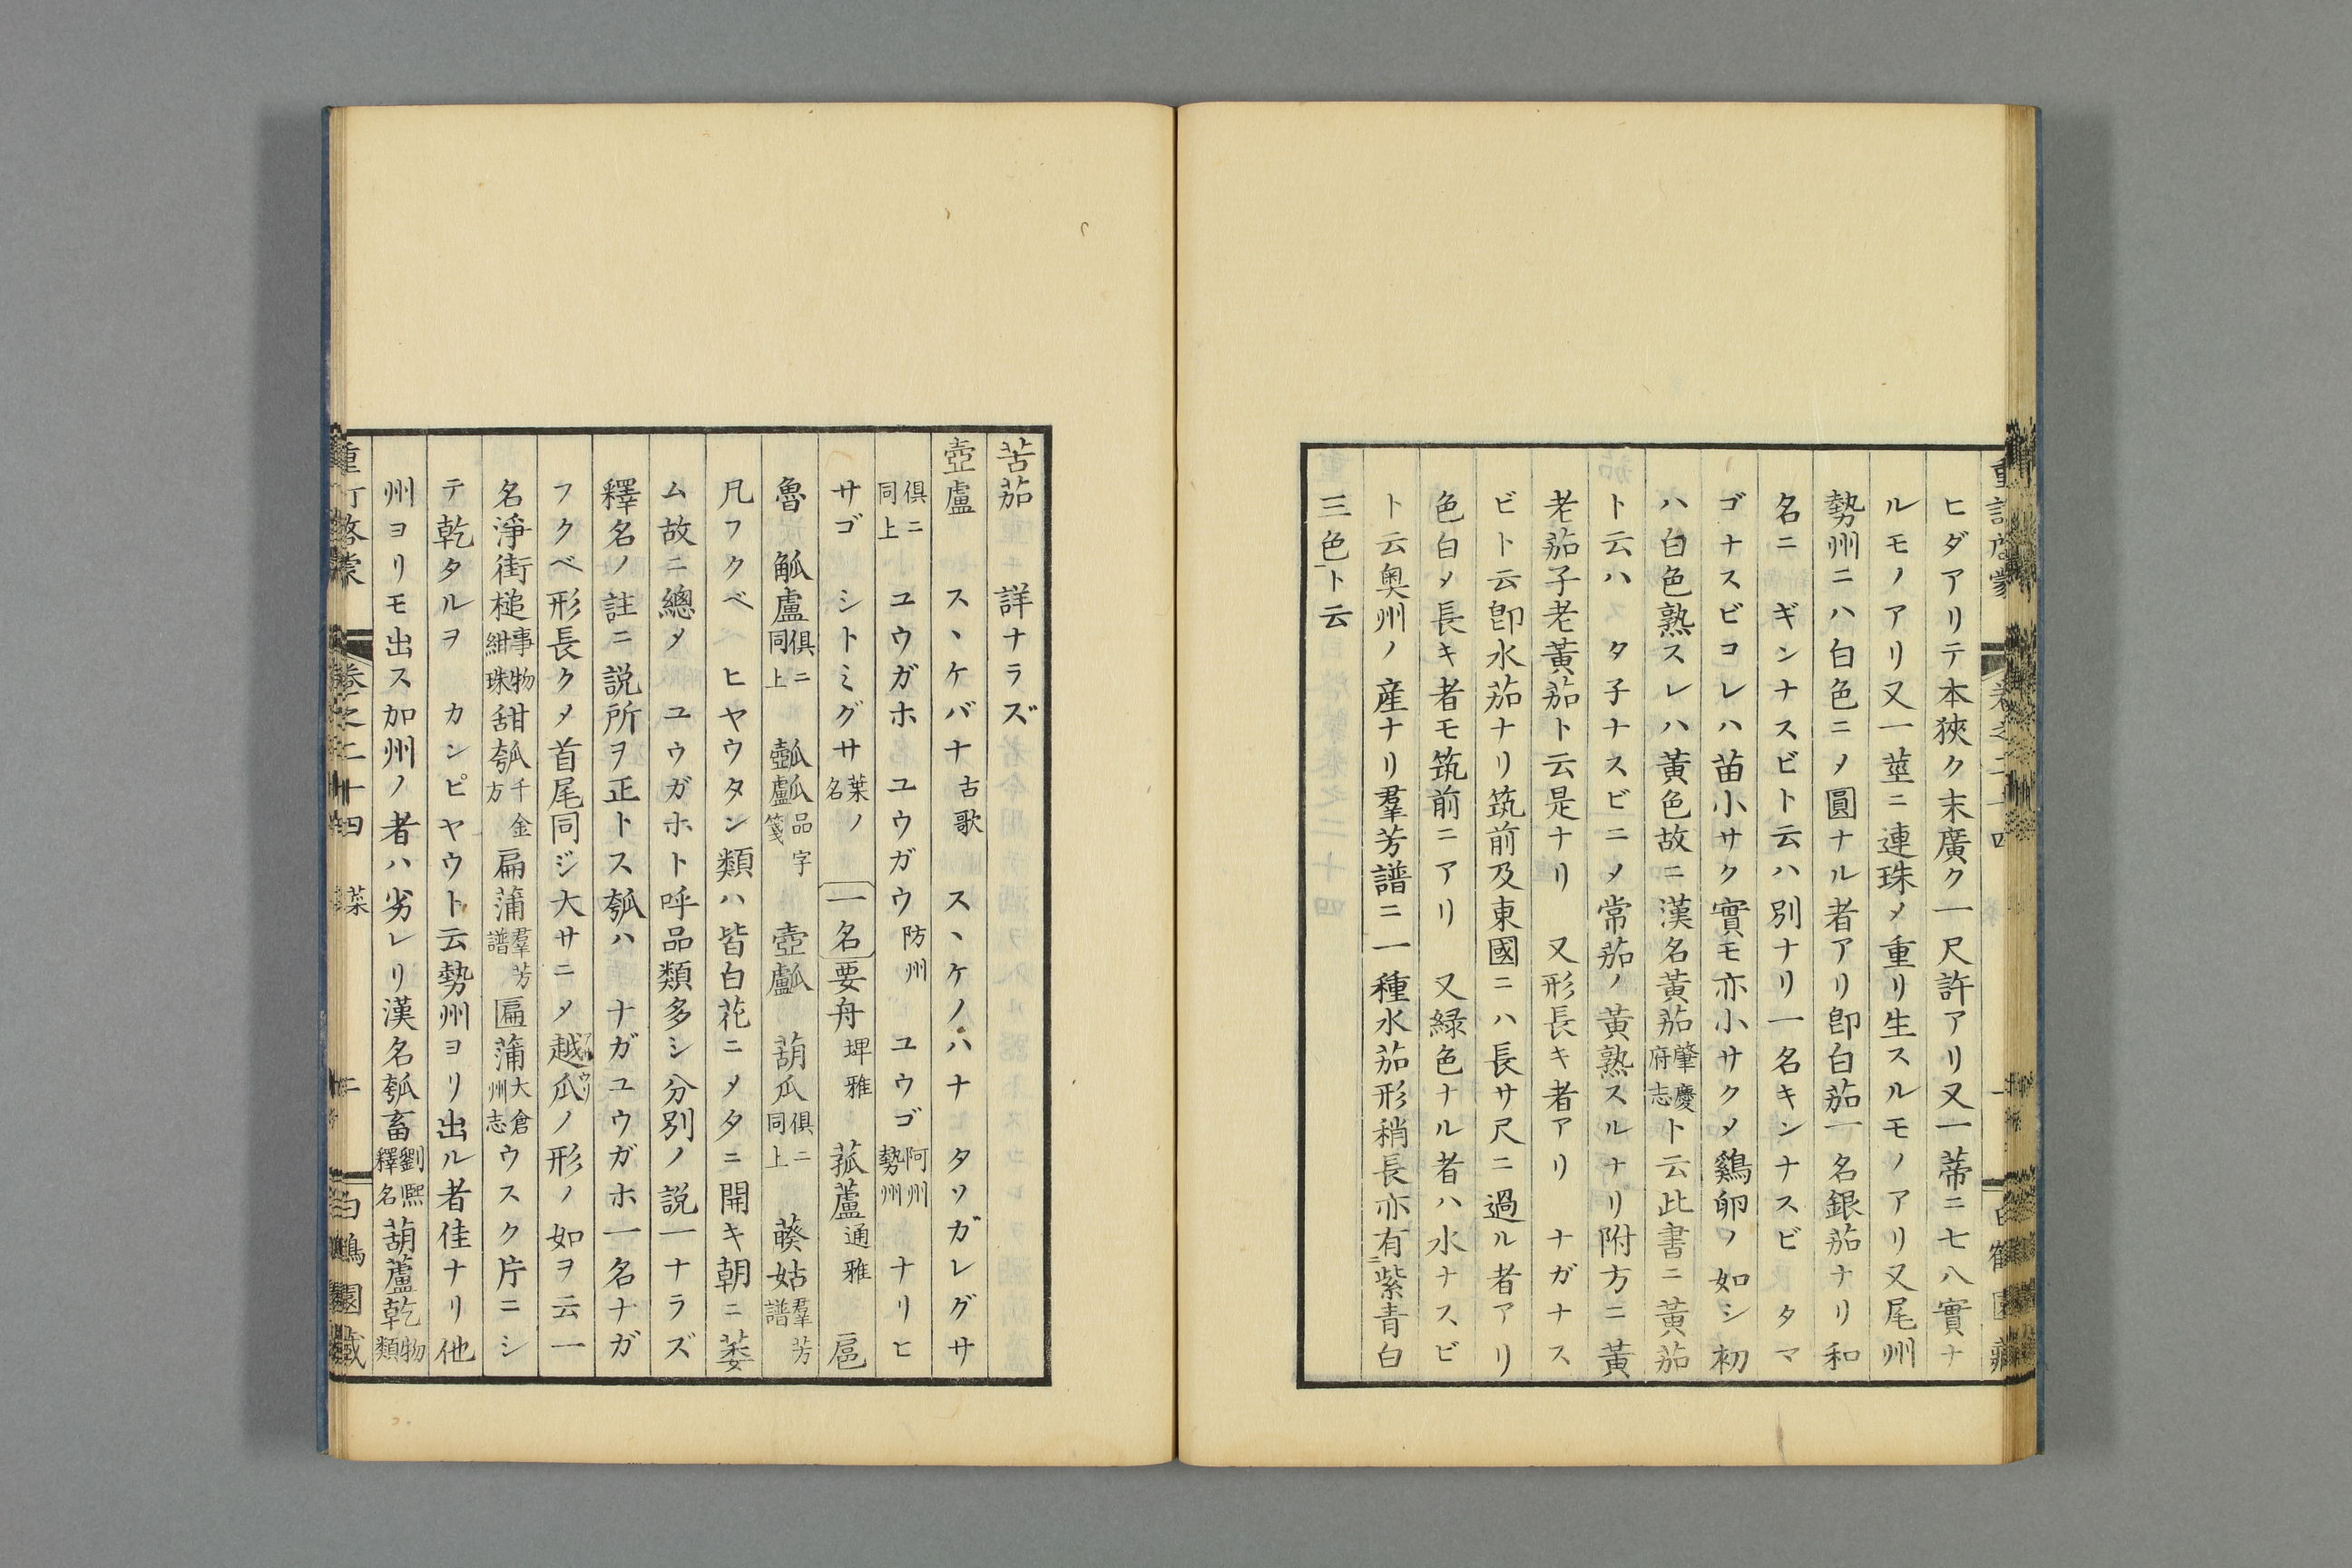 ヒダアリテ本狹ク末廣ク一尺許アリ又一蒂ニ七八實ナ
ルモノアリ又一莖ニ連珠メ重リ生スルモノアリ又尾州
勢州ニハ白色ニメ圓ナル者アリ卽白茄一名銀茄ナリ和
名ニ ギンナスビト云ハ別ナリ一名キンナスビ タマ
ゴナスビコレハ苗小サク實モ亦小サクメ鷄卵ノ如シ初
ハ白色熟スレハ黃色故ニ漢名黃茄肇慶府志ト云此書ニ黃茄
ト云ハ タ子ナスビニメ常茄ノ黃熟スルナリ附方ニ黃
老茄子老黃茄ト云是ナリ 又形長キ者アリ ナガナス
ビト云卽水茄ナリ筑前及東國ニハ長サ尺ニ過ル者アリ
色白メ長キ者モ筑前ニアリ 又緑色ナル者ハ水ナスビ
ト云奥州ノ産ナリ羣芳譜ニ一種水茄形稍長亦有紫青白
三色ト云
苦茄 詳ナラズ
壺盧 スヽケバナ古歌 スヽケノハナ タソガレグサ
俱ニ同上 ユウガホ ユウガウ防州 ユウゴ阿州勢州 ナリヒ
サゴ シトミグサ葉ノ名 一名要舟埤雅 菰蘆通雅 扈
魯 觚盧俱ニ同上 𤬛𤬜品字箋 壺𤬜 葫瓜俱ニ同上 蔾姑羣芳譜
凡フクベ ヒヤウタン類ハ皆白花ニメタニ開キ朝ニ萎
ム故ニ總メ ユウガホト呼品類多シ分別ノ說一ナラズ
釋名ノ註ニ說所ヲ正トス瓠ハ ナガユウガホ一名ナガ
フクベ形長クメ首尾同ジ大サニメ越瓜ノ形ノ如ヲ云一
名淨街槌事物紺珠甜瓠千金方扁蒲羣芳譜匾蒲大倉州志ウスク片ニシ
テ乾タルヲ カンピヤウト云勢州ヨリ出ル者佳ナリ他
州ヨリモ出ス加州ノ者ハ劣レリ漢名瓠畜劉熙釋名葫蘆乾物類
卷之二十四 菜 二